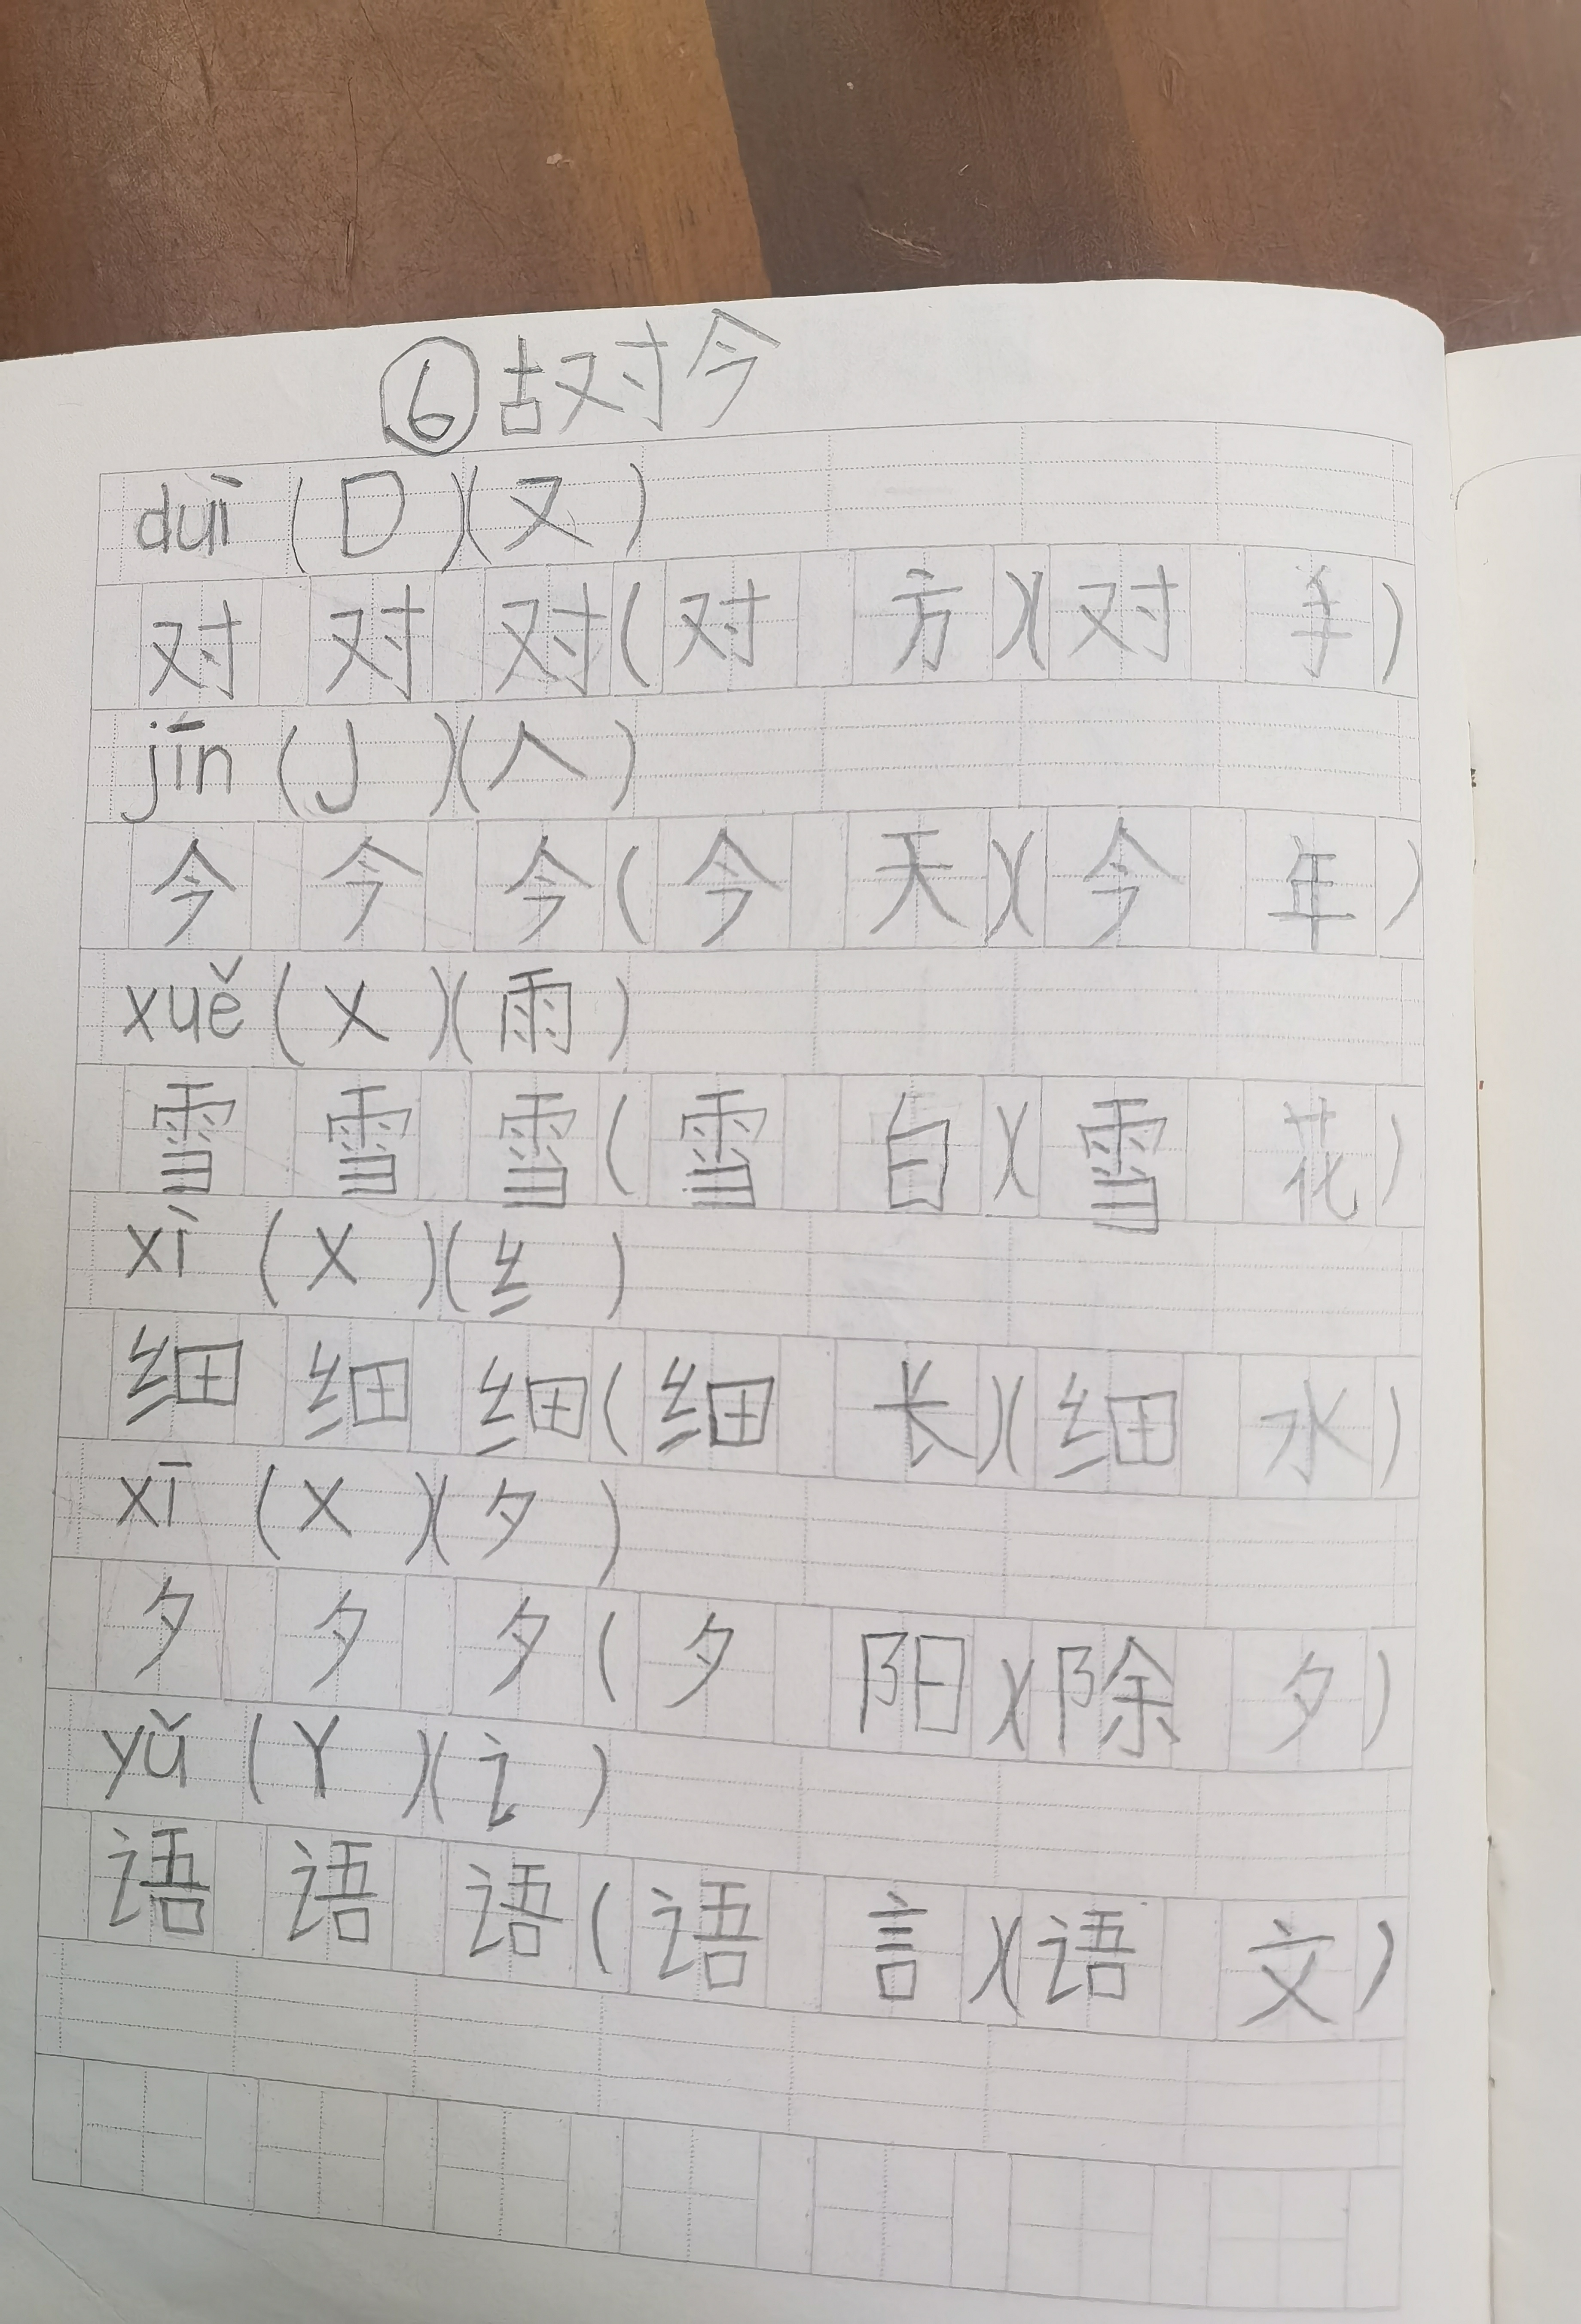 ⑥古对今
duì (D)(又)
对 对 对(对 方)(对 手)
jīn (J)(人)
今 今 今(今 天)(今 年)
xuě (X)(雨)
雪 雪 雪(雪 白)(雪 花)
xì (X)(纟)
细 细 细(细 长)(细 水)
xī (X)(夕)
夕 夕 夕(夕 阳)(除 夕)
yǔ (Y)(讠)
语 语 语(语 言)(语 文)